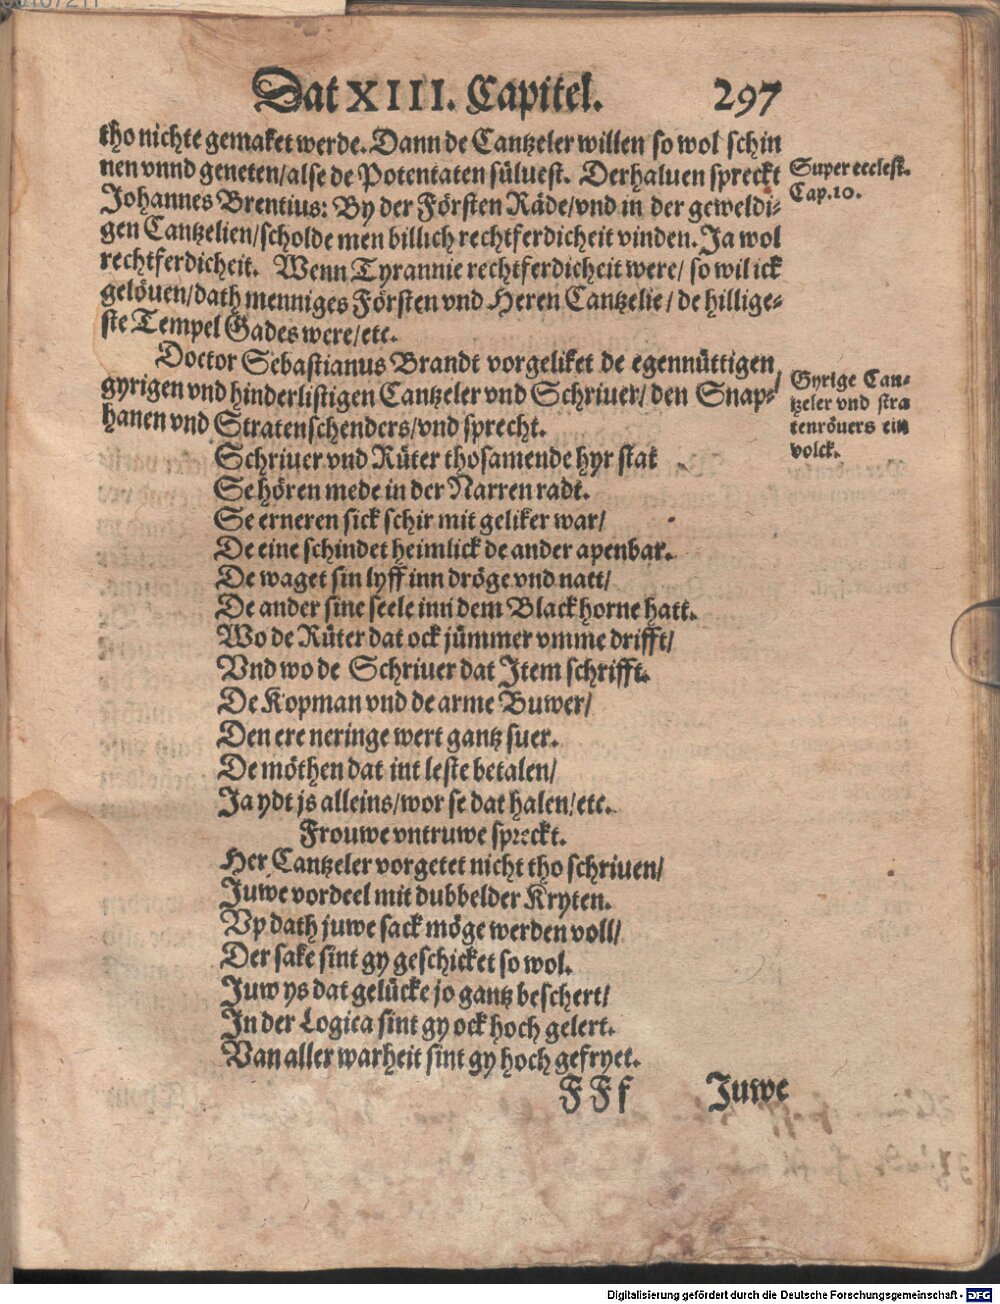 Dat XIII. Capitel. 297
tho nichte gemaket werde. Dann de Cantzeler willen so wol schin
nen vnnd geneten/alse de Potentaten süluest. Derhaluen spreckt
Johannes Brentius: By der Försten Räde/vnd in der geweldi-
gen Cantzelien/scholde men billich rechtferdicheit vinden. Ja wol
rechtferdicheit. Wenn Tyrannie rechtferdicheit were/ so wil ick
gelöuen/dath menniges Försten vnd Heren Cantzelie/ de hillige-
ste Tempel Gades were/etc.
Super eccles.
Cap. 10.
Doctor Sebastianus Brandt vorgeliket de egennüttigen
gyrigen vnd hinderlistigen Cantzeler vnd Schriuer/ den Snap-
hanen vnd Stratenschenders/vnd sprecht.
Gyrige Can-
tzeler vnd stra
tenröuers ein
volck.
Schriuer vnd Rüter thosamende hyr stat
Se hören mede in der Narren radt.
Se erneren sick schir mit geliker war/
De eine schindet heimlick de ander apenbar.
De waget sin lyff inn dröge vnd natt/
De ander sine seele inn dem Blackhorne hatt.
Wo de Rüter dat ock jümmer vmme drifft/
Vnd wo de Schriuer dat Item schrifft.
De Kopman vnd de arme Buwer/
Den ere neringe wert gantz suer.
De möthen dat int leste betalen/
Ja ydt js alleins/wor se dat halen/etc.
Frouwe vntruwe spreckt.
Her Cantzeler vorgetet nicht tho schriuen/
Juwe vordeel mit dubbelder Kryten.
Vp dath juwe sack möge werden voll/
Der sake sint gy geschicket so wol.
Juw ys dat gelücke jo gantz beschert/
In der Logica sint gy ock hoch gelert.
Van aller warheit sint gy hoch gefryet.
FFf Juwe
Digitalisierung gefördert durch die Deutsche Forschungsgemeinschaft - DFG